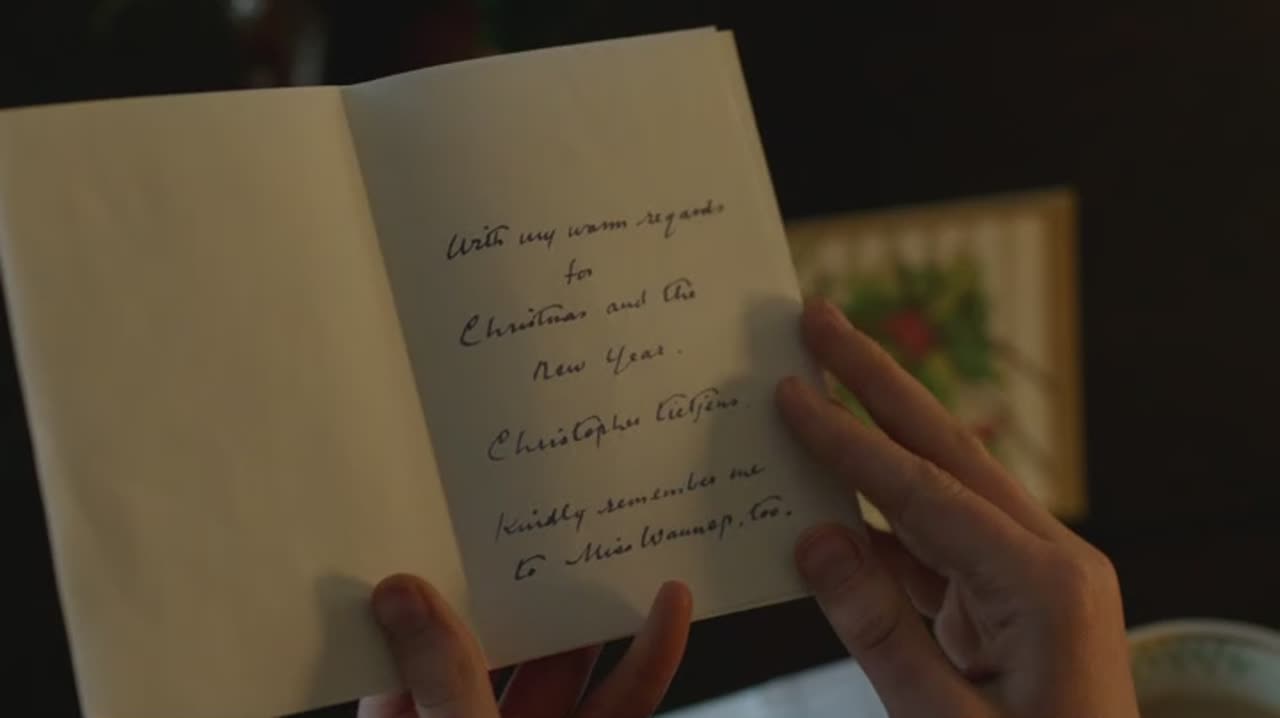 With my warm regards
for
Christmas and the
New Year.
Christopher Tietjens.
Kindly remember me
to Miss Wannop, too.